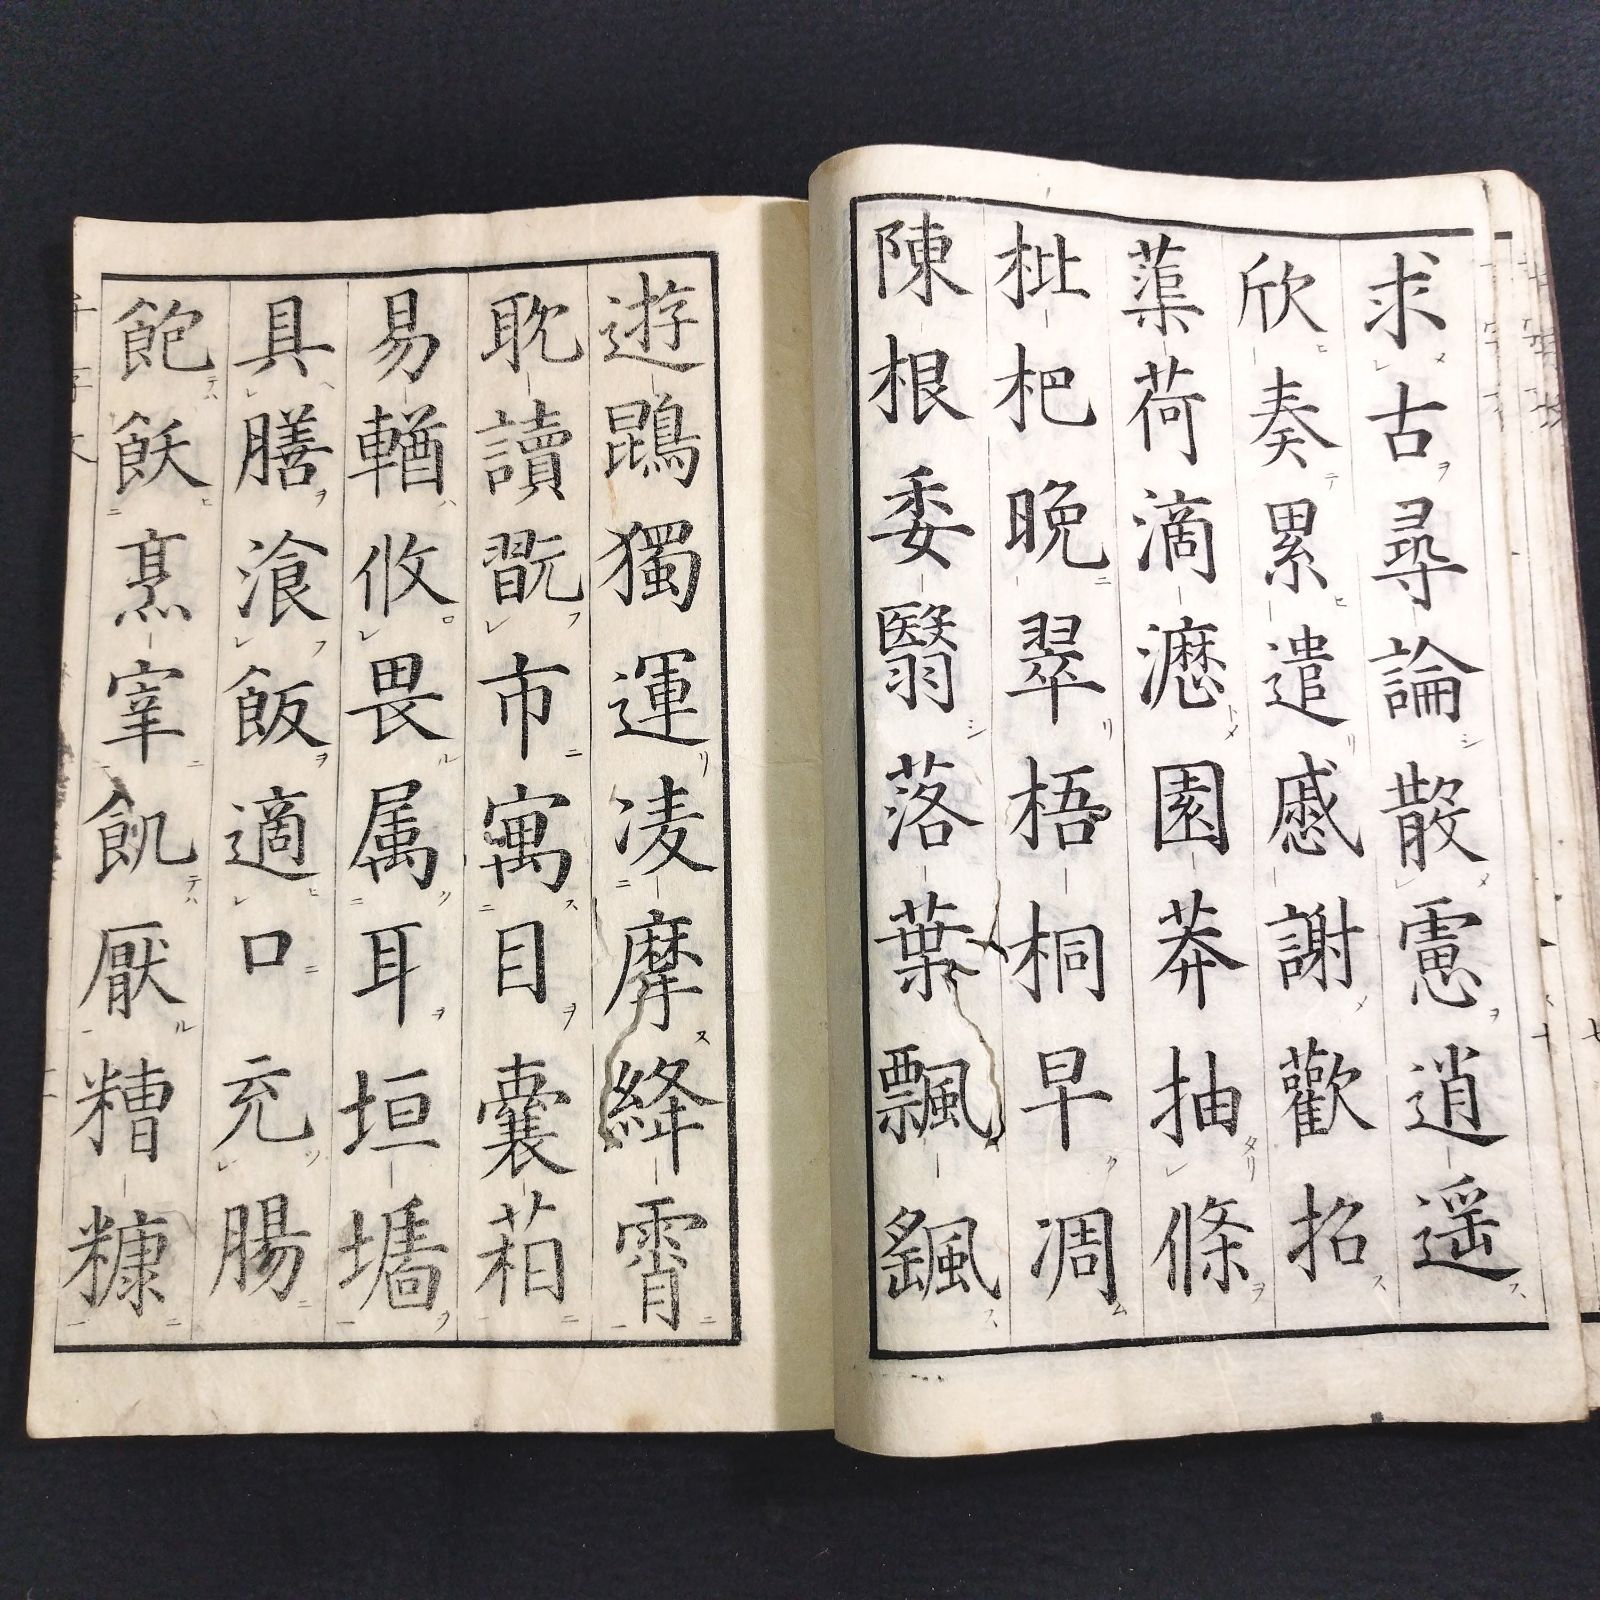 求古尋論散慮逍遥
欣奏累遣慼謝歡招
蕖荷滴瀝園莽抽條
枇杷晩翠梧桐早凋
陳根委翳落葉飄颻
遊鵾獨運凌摩絳霄
耽讀翫市寓目囊箱
易輶攸畏属耳垣墻
具膳飡飯適口充腸
飽飫烹宰飢厭糟糠